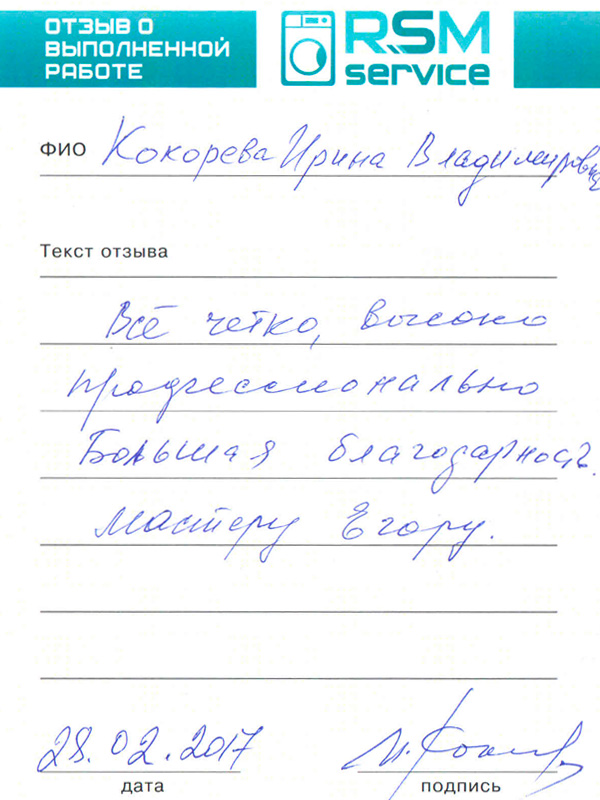 ОТЗЫВ О
ВЫПОЛНЕННОЙ
РАБОТЕ
RSM
service
ФИО Кокорева Ирина Владимировна
Текст отзыва
Всё четко, высоко
профессионально
Большая благодарность
мастеру Егору.
28.02.2017
дата
подпись